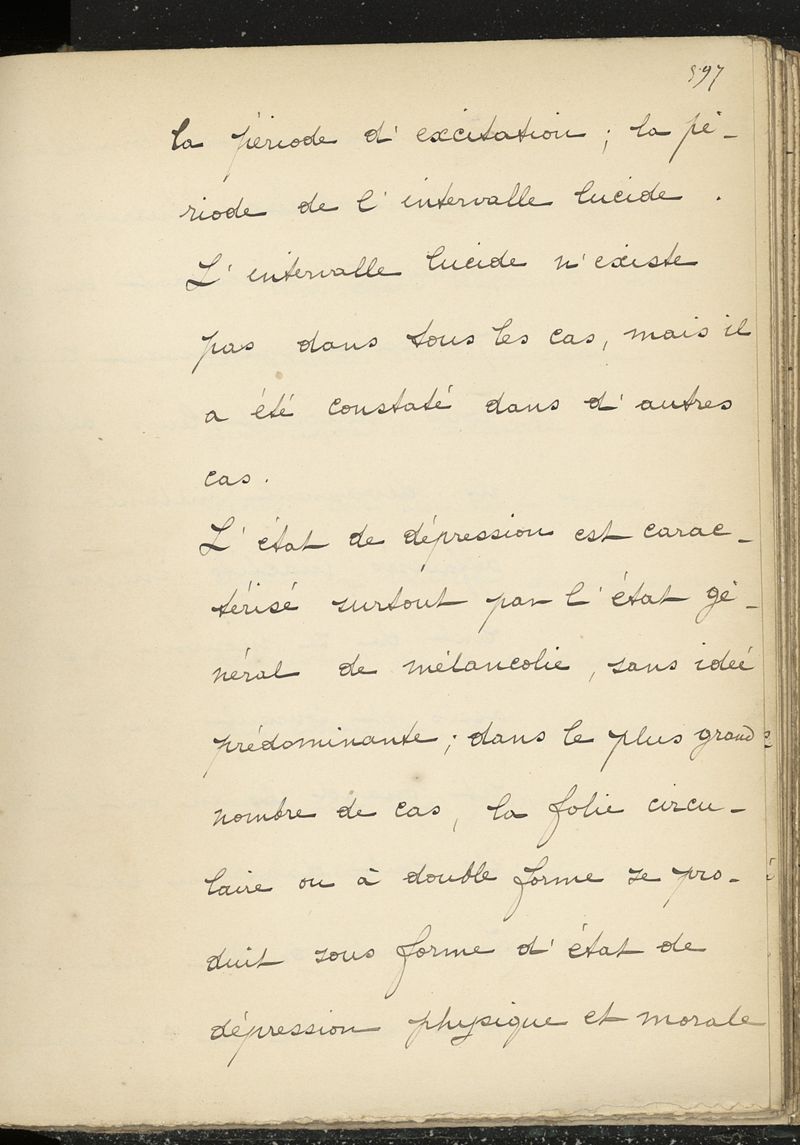 597
la période d'excitation ; la pé-
riode de l'intervalle lucide.
L'intervalle lucide n'existe
pas dans tous les cas, mais il
a été constaté dans d'autres
cas.
L'état de dépression est carac-
térisé surtout par l'état gé-
néral de mélancolie, sans ideé
prédominante ; dans le plus grand
nombre de cas, la folie circu-
laire ou à double forme se pro-
duit sous forme d'état de
dépression physique et morale